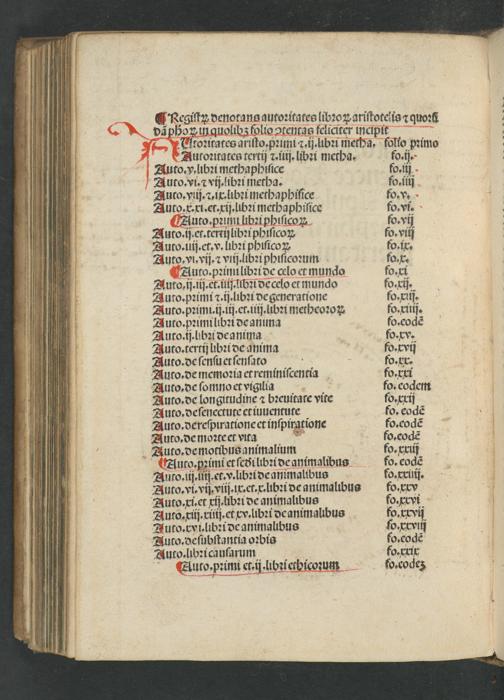 ¶ Registꝝ denotans autoritates libroꝝ aristotelis ⁊ quorū
dā pħoꝝ in quolibꝫ folio ꝯtentas feliciter incipit
Autoritates aristo. primi ⁊.ij. libri metha. folio primo
Autoritates tertij ⁊.iiij. libri metha. fo.ij.
Auto.v. libri methaphisice fo.iij
Auto.vi. ⁊ vij. libri metha. fo.iiij
Auto.viij.⁊.ix. libri methaphisice fo.v.
Auto.x.xi.et.xij. libri methaphisice fo.vi.
¶ Auto.primi libri phisicoꝝ fo.vij
Auto.ij.et.tertij libri phisicoꝝ fo.viij
Auto.iiij.et.v. libri phisicoꝝ fo.ix.
Auto.vi.vij.⁊ viij. libri phisicorum fo.x.
¶ Auto.primi libri de celo et mundo fo.xi
Auto.ij.iij.et.iiij. libri de celo et mundo fo.xij.
Auto.primi ⁊.ij. libri de generatione fo.xiij.
Auto.primi.ij.iij.et.iiij. libri metheoroꝝ fo.xiiij.
Auto.primi libri de anima fo.eodē
Auto.ij. libri de anima fo.xv.
Auto.tertij libri de anima fo.xvij
Auto.de sensu et sensato fo.xx.
Auto.de memoria et reminiscentia fo.xxi
Auto.de somno et vigilia fo.eodem
Auto.de longitudine ⁊ breuitate vite fo.xxij
Auto.de senectute et iuuentute fo.eodē
Auto.de respiratione et inspiratione fo.eodē
Auto.de morte et vita fo.eodē
Auto.de motibus animalium fo.xxiij
¶ Auto.primi et scďi libri de animalibus fo.eodē
Auto.iij.iiij.et.v. libri de animalibus fo.xxiiij.
Auto.vi.vij.viij.ix.et.x. libri de animalibus fo.xxv
Auto.xi.et xij. libri de animalibus fo.xxvi
Auto.xiij.xiiij.et xv. libri de animalibus fo.xxvij
Auto.xvi. libri de animalibus fo.xxviij
Auto.de substantia orbis fo.eodē
Auto.libri causarum fo.xxix
¶ Auto.primi et.ij. libri ethicorum fo.eodeꝫ